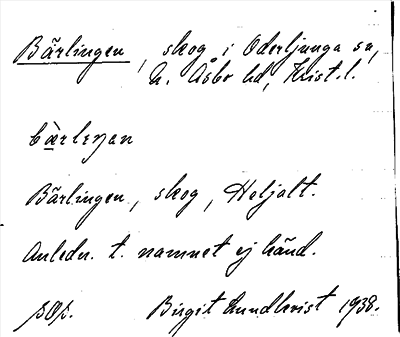 Bärlingen, skog i Oderljunga sn,
N. Åsbo hd, Krist. l.
bæ̀rlɛŋən
Bärlingen, skog, Heljalt.
Anledn. t. namnet ej känd.
Birgit Lundkvist 1938.